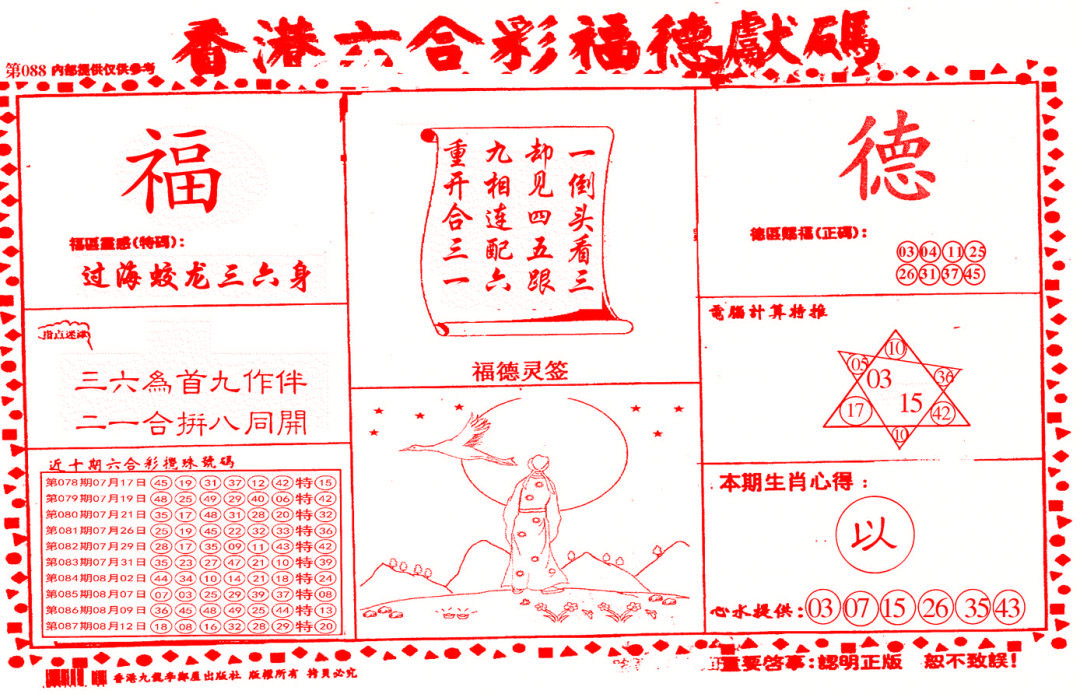 香港六合彩福德獻碼
第088 内部提供仅供参考
福
福區靈感(特碼):
过海蛟龙三六身
指点迷津
三六為首九作伴
二一合拼八同開
近十期六合彩攪珠號碼
第078期07月17日 45 19 31 37 12 42 特 15
第079期07月19日 48 25 49 29 40 06 特 42
第080期07月21日 35 17 48 31 28 20 特 32
第081期07月26日 25 19 45 22 32 33 特 36
第082期07月29日 28 17 35 09 11 43 特 42
第083期07月31日 35 23 27 47 21 10 特 39
第084期08月02日 44 34 10 14 21 18 特 24
第085期08月07日 07 03 25 29 39 37 特 08
第086期08月09日 36 46 48 49 25 44 特 13
第087期08月12日 18 08 16 32 28 29 特 20
一倒头看三
却见四五跟
九相连配六
重开合三一
福德灵签
德
德區賜福(正碼):
03 04 11 25
26 31 37 45
電腦計算特推
10
05 03 36
17 15 42
10
本期生肖心得:
以
心水提供: 03 07 15 26 35 43
香港九龍李鄭屋出版社 版權所有 拷貝必究
重要啓事:認明正版 恕不致誤!